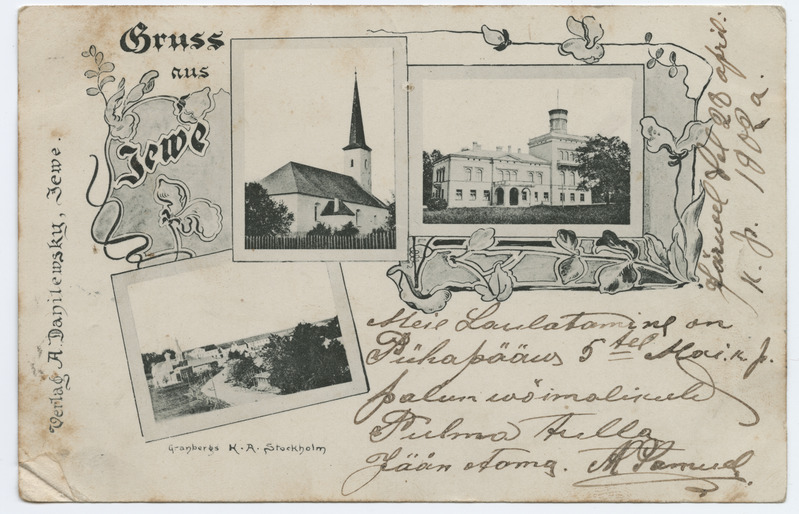 Gruss
aus
Jewe
Verlag A. Danilewsky, Jewe.
Granbergs K. A. Stockholm
28 april.
k. j. 1902 a.
Meie Laulatamine on
Pühapääwa 5 tel Mai. k. j.
palun wõimalikult
Pulma tulla
Jään otama.